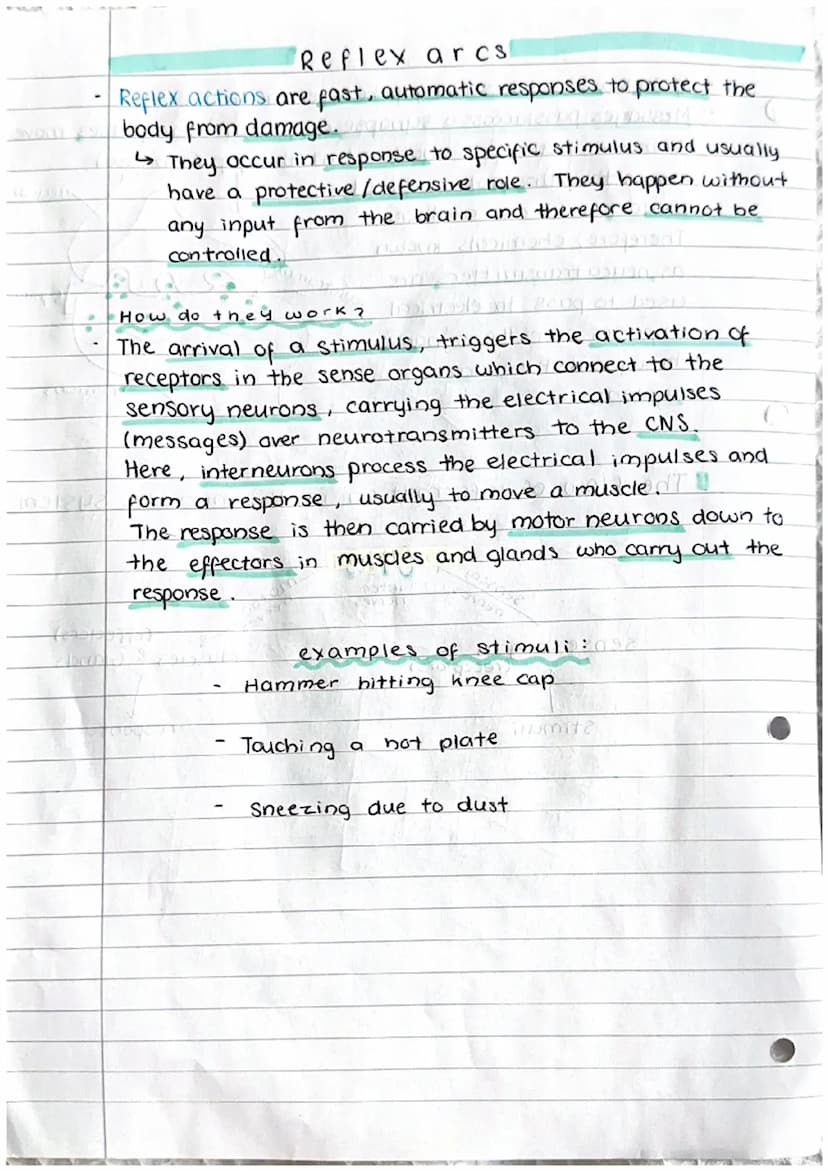 Reflex arcs
- Reflex actions are fast, automatic responses to protect the
body from damage.
↳ They occur in response to specific stimulus and usually
have a protective/defensive role. They happen without
any input from the brain and therefore cannot be
controlled.
How do they work?
- The arrival of a stimulus, triggers the activation of
receptors in the sense organs which connect to the
sensory neurons, carrying the electrical impulses
(messages) over neurotransmitters to the CNS.
Here, interneurons process the electrical impulses and
form a response, usually to move a muscle.
The response is then carried by motor neurons down to
the effectors in muscles and glands who carry out the
response.
examples of stimuli:
- Hammer hitting knee cap
- Touching a hot plate
- Sneezing due to dust